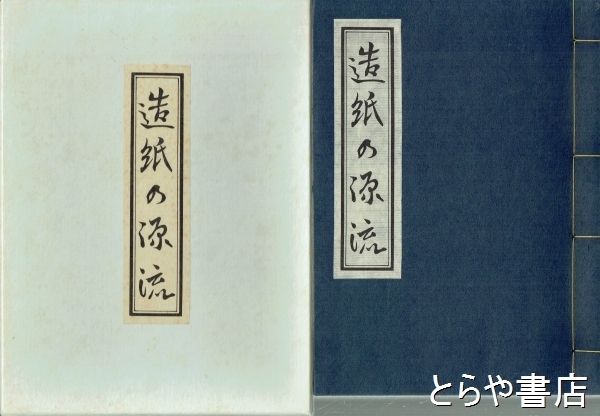 造紙の源流
造紙の源流
とらや書店